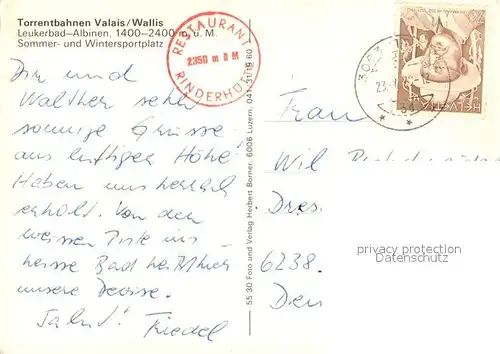 Torrentbahnen Valais/Wallis
Leukerbad–Albinen, 1400–2400 m. ü. M.
Sommer- und Wintersportplatz
RESTAURANT
2350 m ü M
RINDERHÜTTE
Dir und
Walther sehr
sonnige Grüsse
aus luftiger Höhe
Haben uns herrlich
erholt. Von der
weissen Piste ins
heisse Bad
unsere Devise.
Salut! Friedel
55.30 Foto und Verlag Herbert Borner, 6006 Luzern, 041 31 19 60
Frau
Wil
Dres.
6238
Den
HELVETIA
privacy protection
Datenschutz